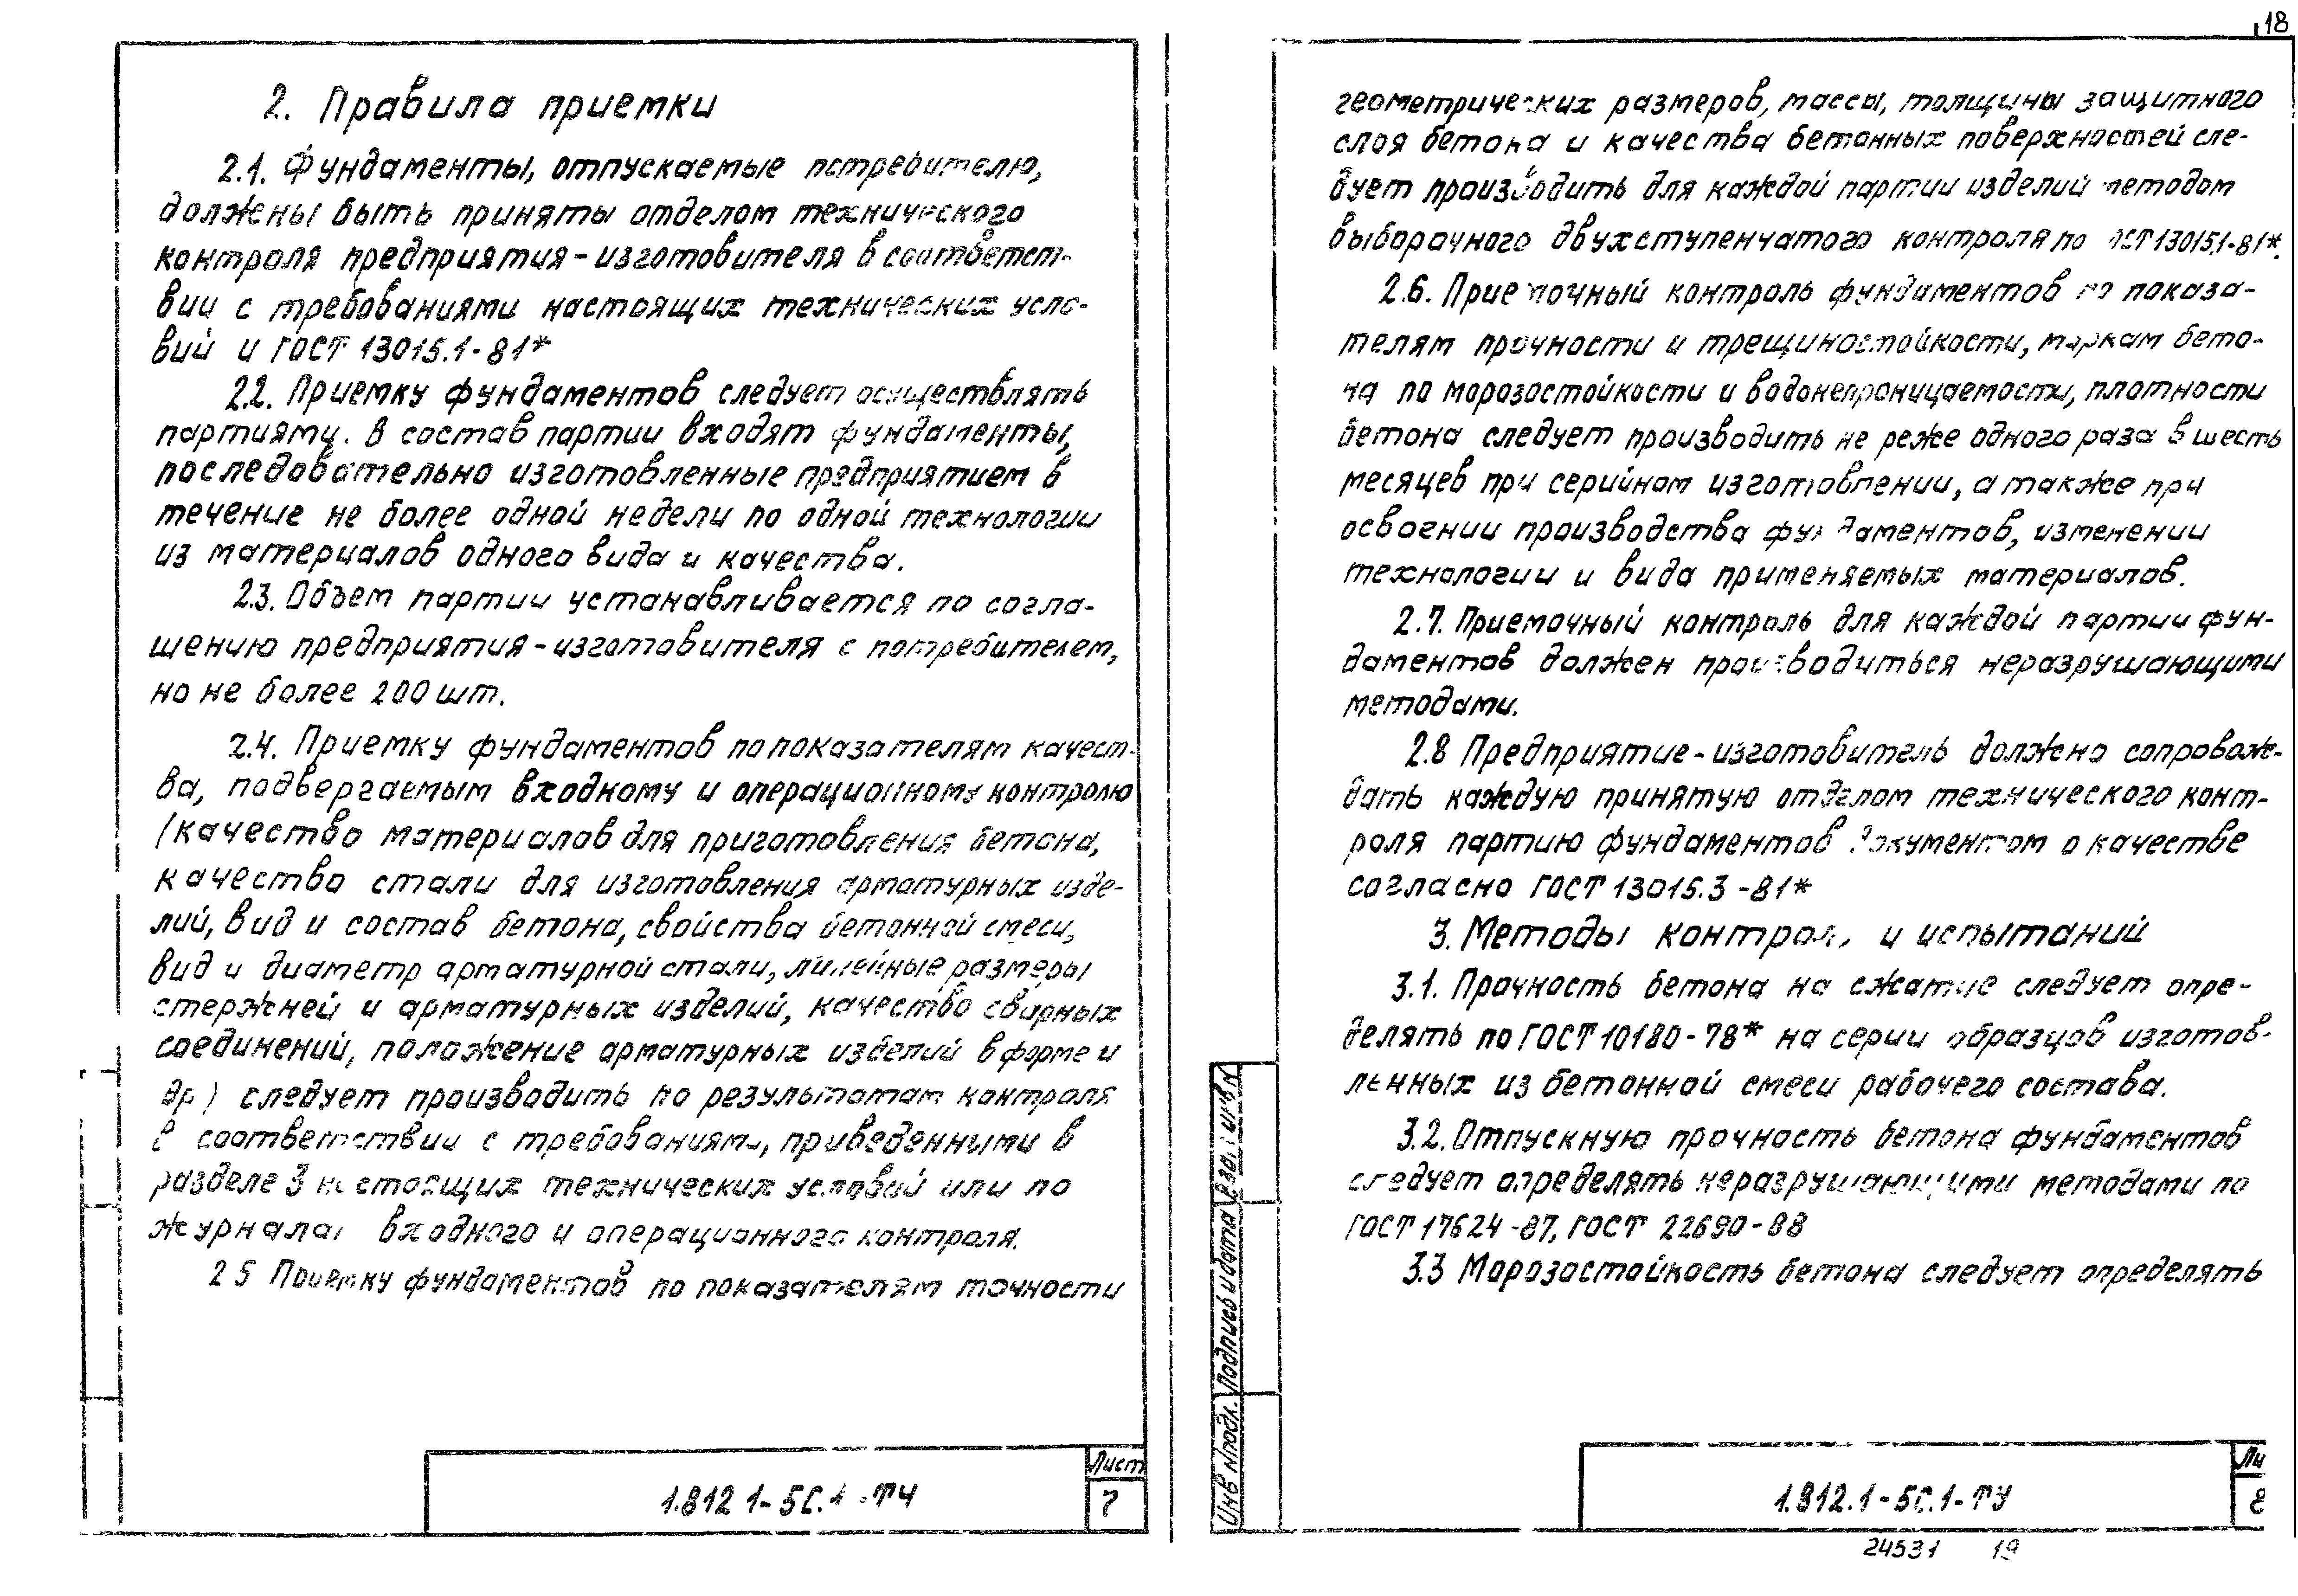 2. Правила приемки
2.1. Фундаменты, отпускаемые потребителю,
должены быть приняты отделом технического
контроля предприятия-изготовителя в соответст-
вии с требованиями настоящих технических усло-
вий и ГОСТ 13015.1-81*
2.2. Приемку фундаментов следует осуществлять
партиями. В состав партии входят фундаменты,
последовательно изготовленные предприятием в
течение не более одной недели по одной технологии
из материалов одного вида и качества.
2.3. Объем партии устанавливается по согла-
шению предприятия-изготовителя с потребителем,
но не более 200 шт.
2.4. Приемку фундаментов по показателям качест-
ва, подвергаемым входному и операционному контролю
(качество материалов для приготовления бетона,
качество стали для изготовления арматурных изде-
лий, вид и состав бетона, свойства бетонной смеси,
вид и диаметр арматурной стали, линейные размеры
стержней и арматурных изделий, качество сварных
соединений, положение арматурных изделий в форме и
др) следует производить по результатам контроля
в соответствии с требованиями, приведенными в
разделе 3 настоящих технических условий или по
журналам входного и операционного контроля.
2 5 Приемку фундаментов по показателям точности
1.812 1-5С.1-ТУ
Лист
7
18
геометрических размеров, массы, толщины защитного
слоя бетона и качества бетонных поверхностей сле-
дует производить для каждой партии изделий методом
выборочного двухступенчатого контроля по ГОСТ 13015.1-81*.
2.6. Приемочный контроль фундаментов по показа-
телям прочности и трещиностойкости, маркам бето-
на по морозостойкости и водонепроницаемости, плотности
бетона следует производить не реже одного раза в шесть
месяцев при серийном изготовлении, а также при
освоении производства фундаментов, изменении
технологии и вида применяемых материалов.
2.7. Приемочный контроль для каждой партии фун-
даментов должен производиться неразрушающими
методами.
2.8 Предприятие-изготовитель должно сопровож-
дать каждую принятую отделом технического конт-
роля партию фундаментов документом о качестве
согласно ГОСТ 13015.3-81*
3. Методы контроля и испытаний
3.1. Прочность бетона на сжатие следует опре-
делять по ГОСТ 10180-78* на серии образцов изготов-
ленных из бетонной смеси рабочего состава.
3.2. Отпускную прочность бетона фундаментов
следует определять неразрушающими методами по
ГОСТ 17624-87, ГОСТ 22690-88
3.3 Морозостойкость бетона следует определять
Инв №подл.
Подпись и дата
Взам инв №
1.812.1-5С.1-ТУ
Ли
8
24531 19